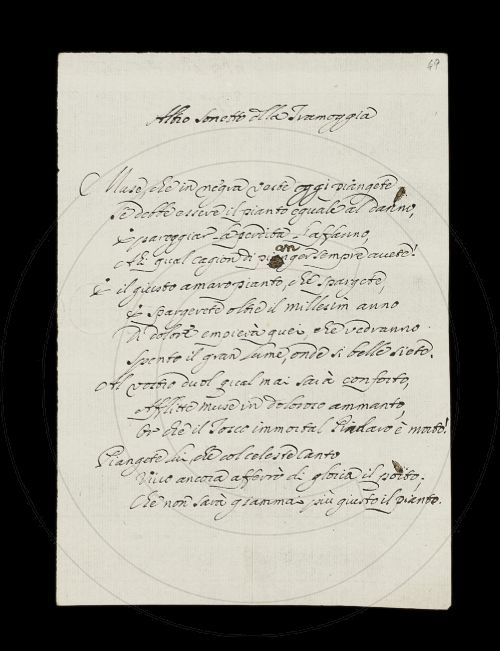 49
Altro Sonetto della Tramoggia
Muse, che in negra veste oggi piangete
Se debbe essere il pianto eguale al danno,
E pareggiar la perdita l'affanno,
Ahi qual cagion di pianger sempre avete!
E il giusto amaro pianto, che spargete,
E spargerete oltre il millesim anno
Di dolore empierà quei che vedranno
Spento il gran lume, onde sì belle siete.
Al vostro duol qual mai sarà conforto,
Afflitte muse in doloroso ammanto,
Or che il Tosco immortal Pindaro è morto!
Piangete lui, che col celeste Canto
Vivo ancora afferrò di gloria il porto;
Che non sarà giammai più giusto il pianto.